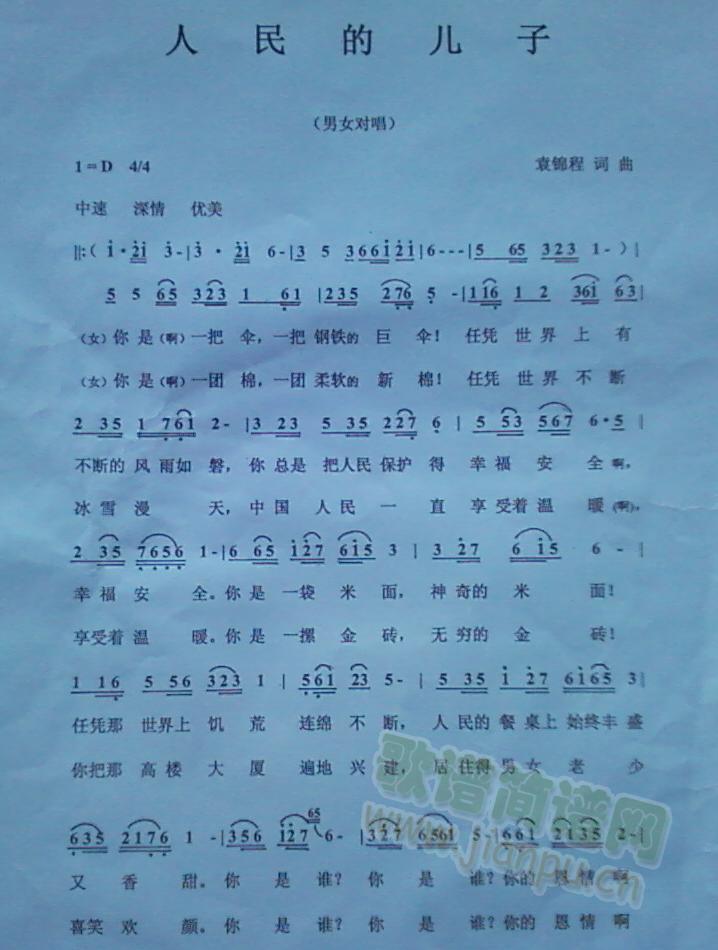 人民的儿子
（男女对唱）
1=D 4/4 袁锦程 词 曲
中速 深情 优美
‖:( i·2i 3-|3·2i 6-|3 5 3661 2i|6---|5 65 323 1-)|
5 5 65 323 1 61 |235 276 5-|116 1 2 361 63|
（女）你是（啊）一把 伞，一把 钢铁的 巨 伞！ 任凭 世 界 上 有
（女）你是（啊）一团 棉，一团 柔软的 新 棉！ 任凭 世 界 不 断
2 35 1 761 2- |3 23 5 35 227 6 | 5 53 567 6·5 |
不断的 风 雨如 磐，你 总是 把人民 保护 得 幸 福 安 全 啊，
冰 雪 漫 天，中 国 人 民 一 直 享 受着 温 暖（啊），
2 35 7656 1-|6 65 i27 6i5 3 | 3 27 6 i5 6 - |
幸 福 安 全。你 是 一袋 米 面，神 奇的 米 面！
享受着 温 暖。你 是 一摞 金 砖，无 穷的 金 砖！
1 16 5 56 323 1 | 561 23 5- | 5 35 i 27 6165 3|
任凭那 世界上 饥 荒 连绵 不 断，人 民的 餐 桌上 始终丰 盛
你把那 高楼 大 厦 遍地 兴 建，居 住得 男 女 老 少
635 2176 1 -|356 i27 65 6-|327 6561 5-|661 2135 2-|
又 香 甜。你 是 谁？你 是 谁？你的 恩 情 啊
喜笑 欢 颜。你 是 谁？你 是 谁？你的 恩 情 啊
歌谱简谱网
www.jianpu.cn